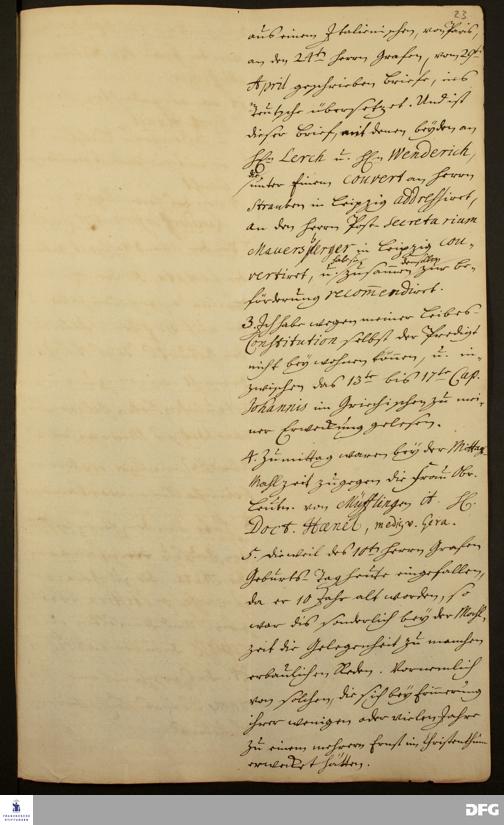 23
aus einem Italienischen, von Paris,
an den 24ten Herrn Grafen, vom 29ten
April geschrieben Briefe, ins
Teutsche übersetzet. Und ist
dieser Brief, mit denen beyden an
HEn Lerch u. HEn Wenderich,
die
unter Einem Couvert an Herrn
Strauben in Leipzig addressiret,
an den Herrn Post-Secretarium
Mauersperger in Leipzig cou-
vertiret, u. zusammen zur be-
förderung recom̄endiret.
3. Ich habe wegen meiner Leibes-
Constitution selbst der Predigt
nicht bey wohnen können, u. in-
zwischen das 13te bis 17te Cap.
Johannis im Griechischen zu mei-
ner Erweckung gelesen.
4. Zu mittag waren bey der Mittags
Mahlzeit zugegen die Frau Obr.
Leutn. von Müfflingen it. H.
Doct. Haenel, medic. v. Gera.
5. Dieweil des 10ten Herrn Grafen
Geburts-Tag heute eingefallen,
da er 10 Jahr alt worden, so
war dis sonderlich bey der Mahl-
zeit die Gelegenheit zu manchen
erbaulichen Reden. Vornemlich
von solchen, die sich bey Erinnerung
ihrer wenigen oder vielen Jahre
zu einem mehrern Ernst im Christenthum
erwecket hätten.
FRANCKESCHE
STIFTUNGEN
DFG